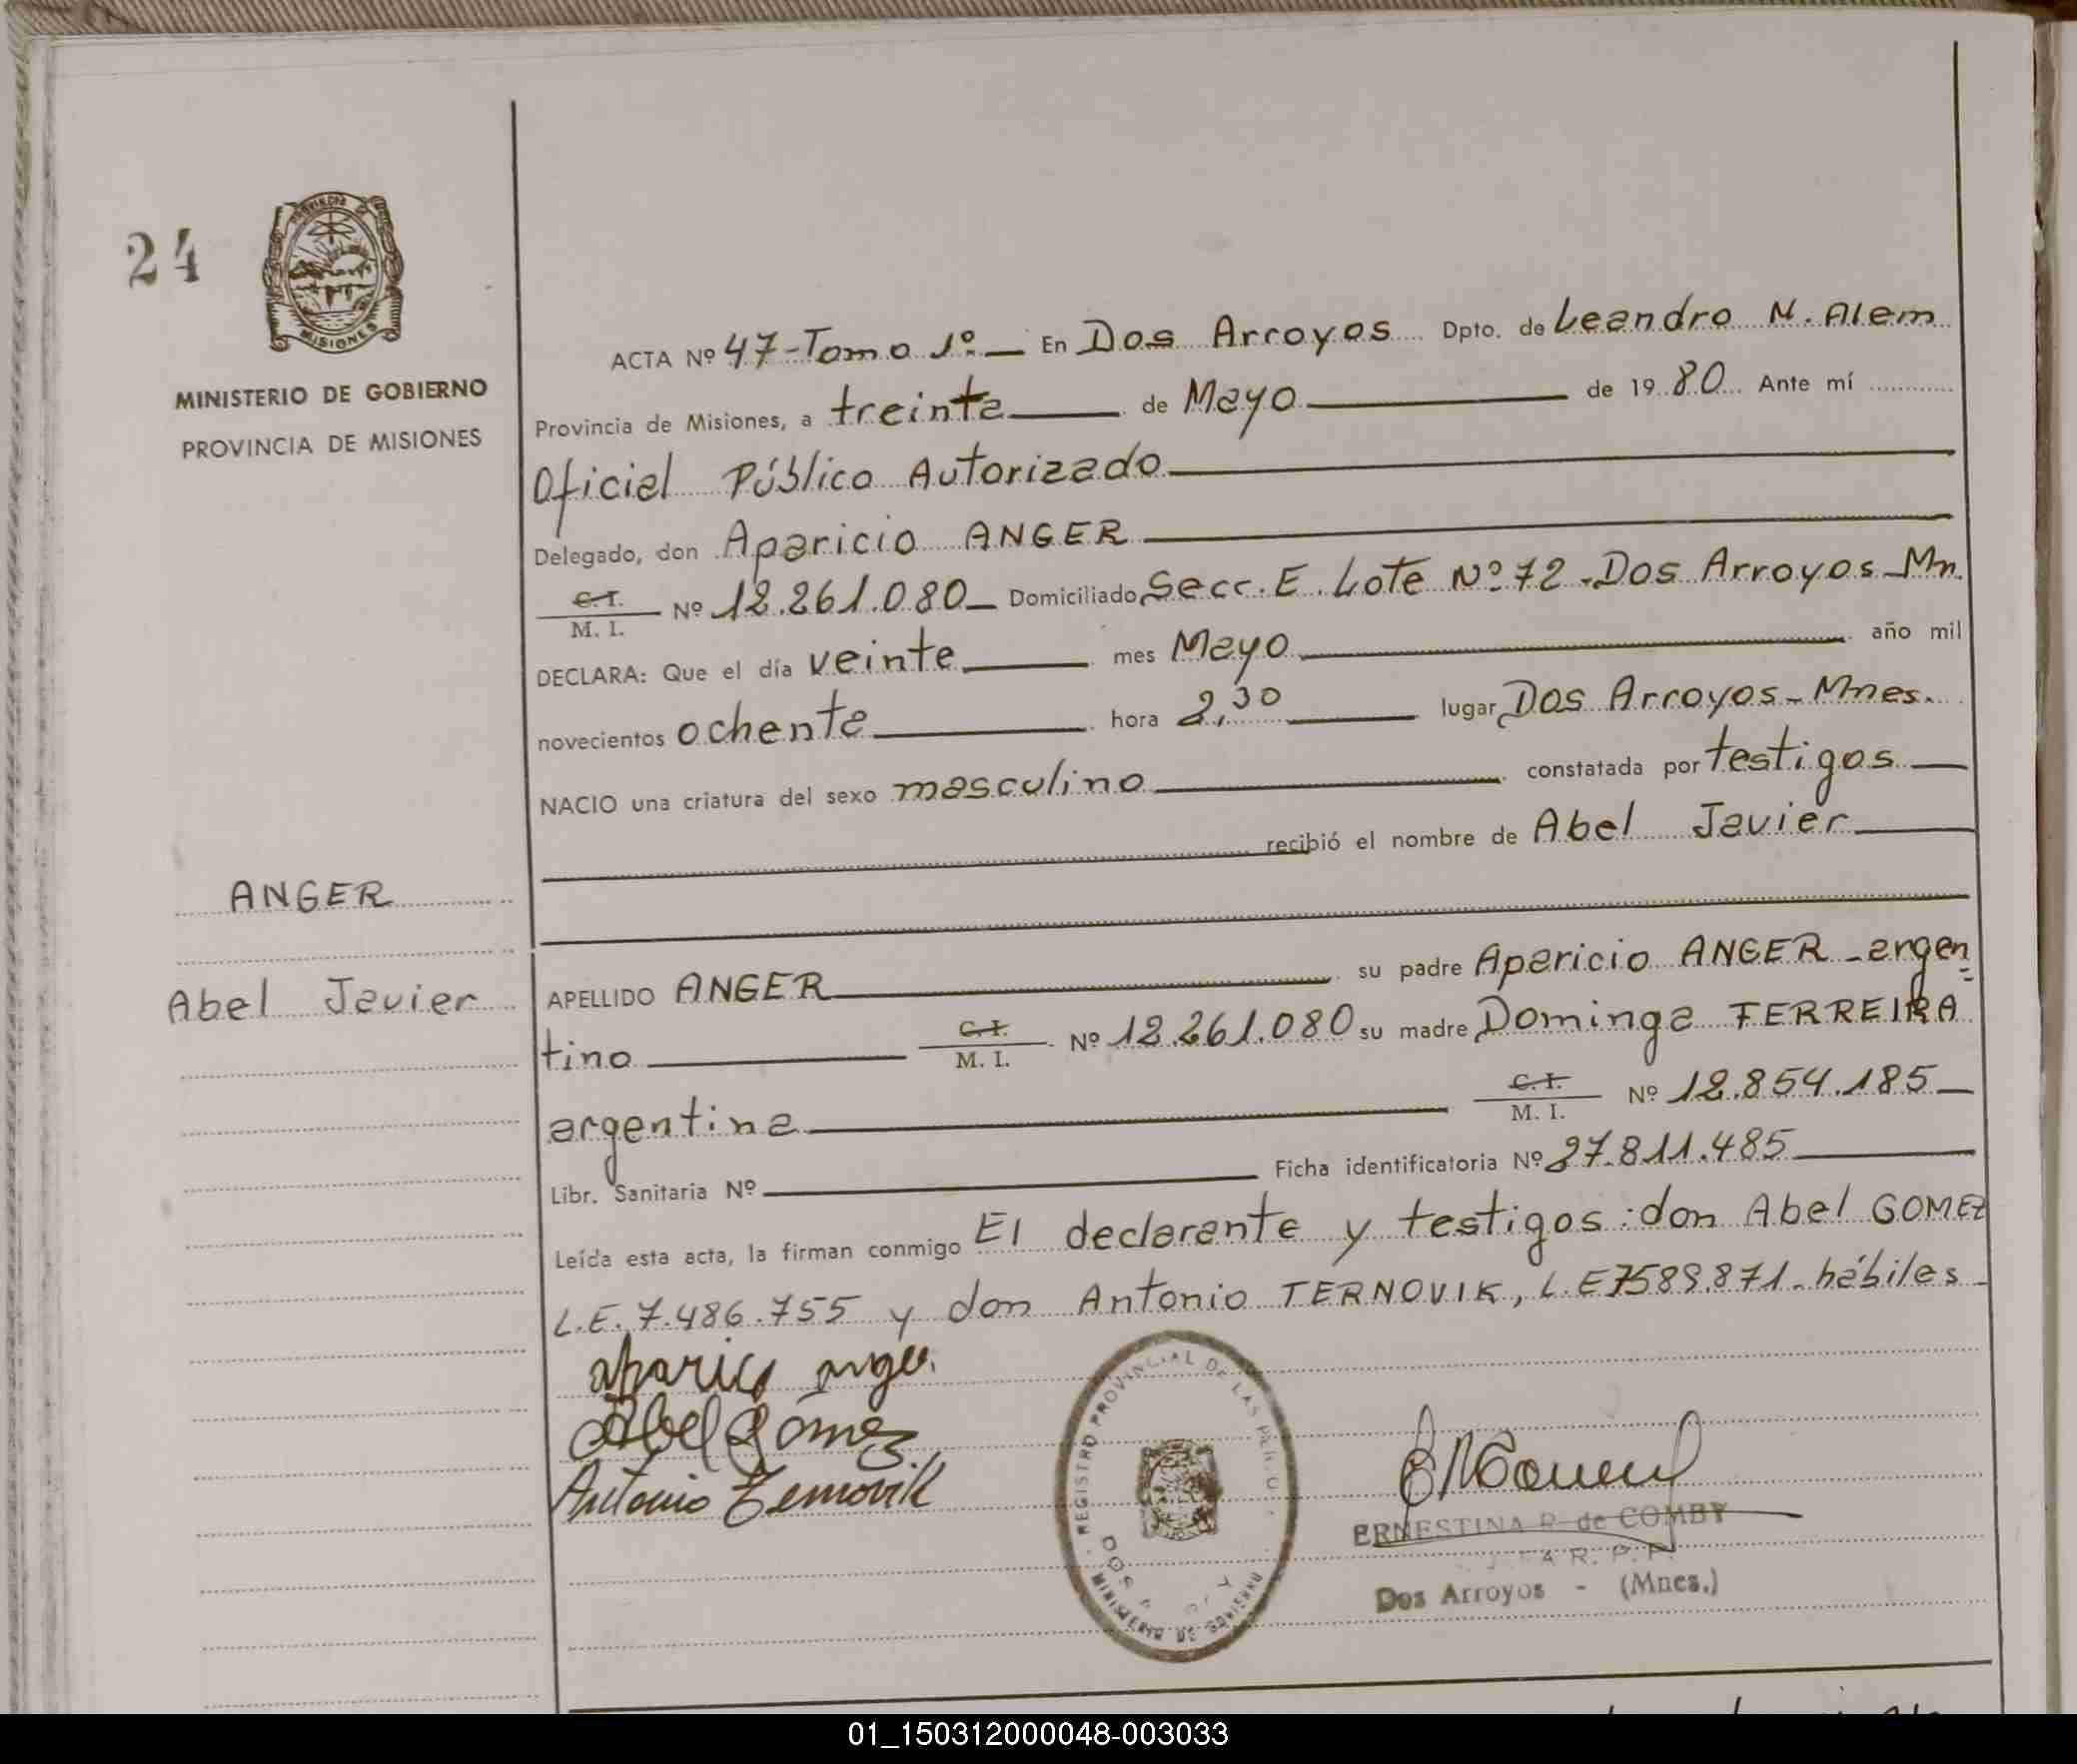 24
PROVINCIA DE
MISIONES
MINISTERIO DE GOBIERNO
PROVINCIA DE MISIONES
ANGER
Abel Javier
ACTA Nº 47-Tomo 1º.— En Dos Arroyos Dpto. de Leandro N. Alem
Provincia de Misiones, a treinta de Mayo de 1980 Ante mí
Oficial Público Autorizado
Delegado, don Aparicio ANGER
C.I.
M. I. Nº 12.261.080 Domiciliado Secc. E. Lote Nº 72-Dos Arroyos-Mn.
DECLARA: Que el día veinte mes Mayo año mil
novecientos ochenta hora 2,30 lugar Dos Arroyos-Mnes.
NACIO una criatura del sexo masculino constatada por testigos
recibió el nombre de Abel Javier
APELLIDO ANGER su padre Aparicio ANGER-argen
tino C.I. M. I. Nº 12.261.080 su madre Dominga FERREIRA
argentina C.I. M. I. Nº 12.854.185
Libr. Sanitaria Nº Ficha identificatoria Nº 27.811.485
Leída esta acta, la firman conmigo El declarante y testigos: don Abel GOMEZ
L.E. 7.486.755 y don Antonio TERNOVIK, L.E 7589.871-hábiles
Aparicio Anger
Abel Gómez
Antonio Ternovik
REGISTRO PROVINCIAL DE LAS
DOS
ERNESTINA R. de COMBY
R. P. P.
Dos Arroyos - (Mnes.)
01_150312000048-003033